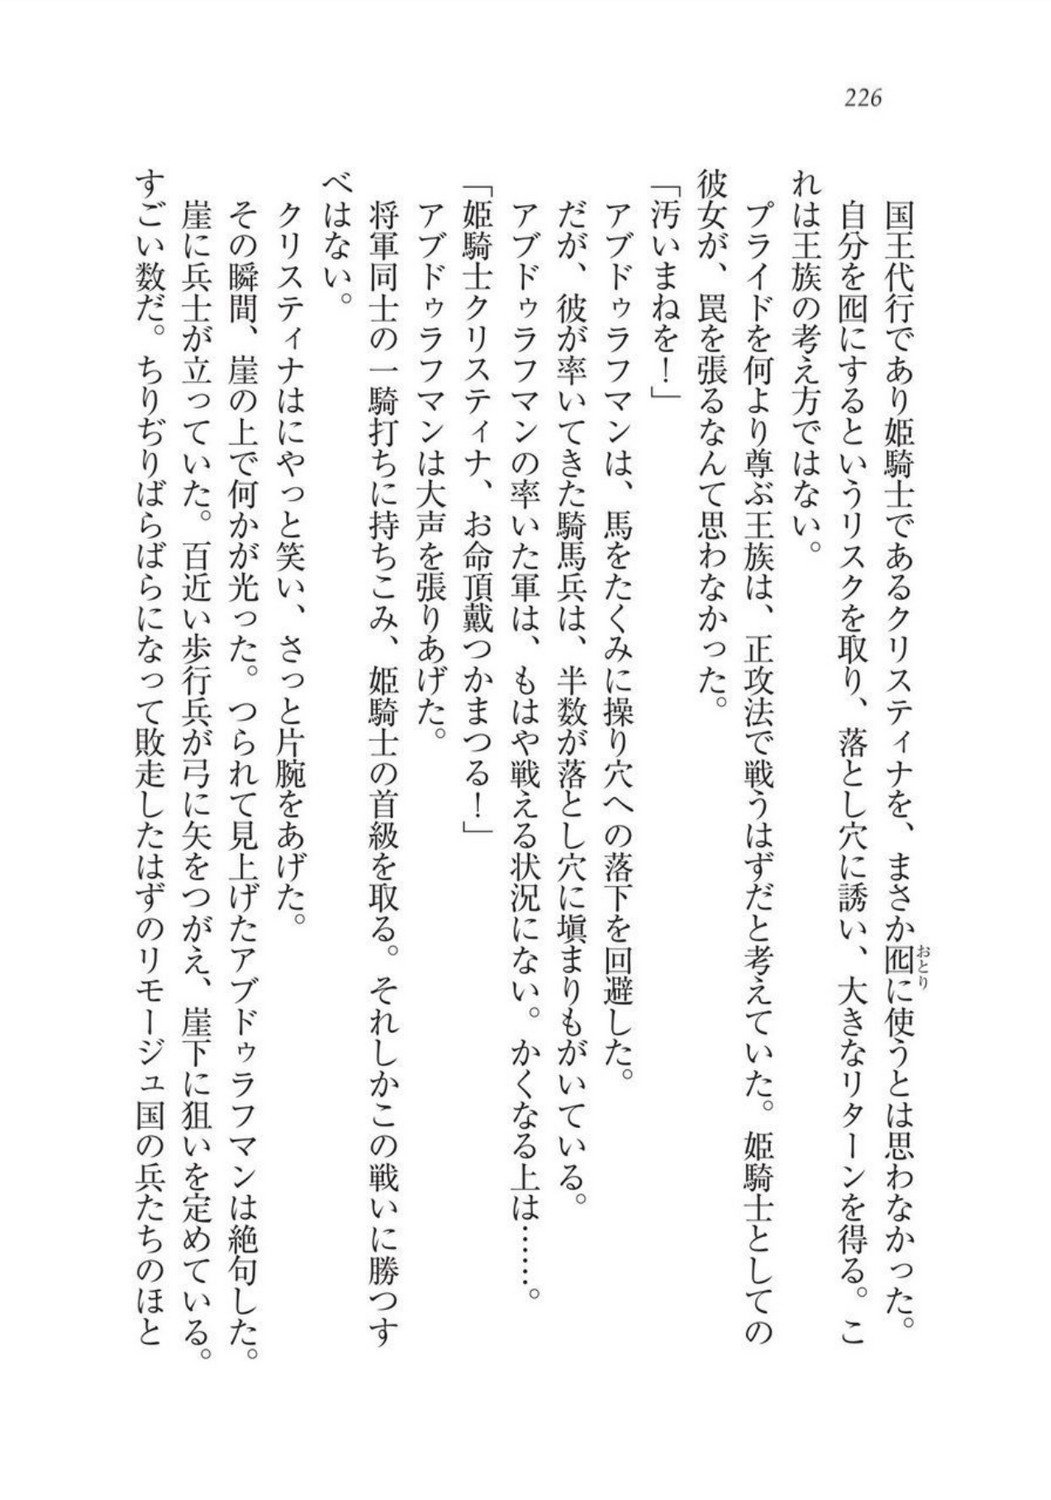 226
国王代行であり姫騎士であるクリスティナを、まさか囮に使うとは思わなかった。
おとり
自分を囮にするというリスクを取り、落とし穴に誘い、大きなリターンを得る。こ
れは王族の考え方ではない。
プライドを何より尊ぶ王族は、正攻法で戦うはずだと考えていた。姫騎士としての
彼女が、罠を張るなんて思わなかった。
「汚いまねを！」
アブドゥラフマンは、馬をたくみに操り穴への落下を回避した。
だが、彼が率いてきた騎馬兵は、半数が落とし穴に塡まりもがいている。
アブドゥラフマンの率いた軍は、もはや戦える状況にない。かくなる上は……。
「姫騎士クリスティナ、お命頂戴つかまつる！」
アブドゥラフマンは大声を張りあげた。
将軍同士の一騎打ちに持ちこみ、姫騎士の首級を取る。それしかこの戦いに勝つす
べはない。
クリスティナはにやっと笑い、さっと片腕をあげた。
その瞬間、崖の上で何かが光った。つられて見上げたアブドゥラフマンは絶句した。
崖に兵士が立っていた。百近い歩行兵が弓に矢をつがえ、崖下に狙いを定めている。
すごい数だ。ちりぢりばらばらになって敗走したはずのリモージュ国の兵たちのほと